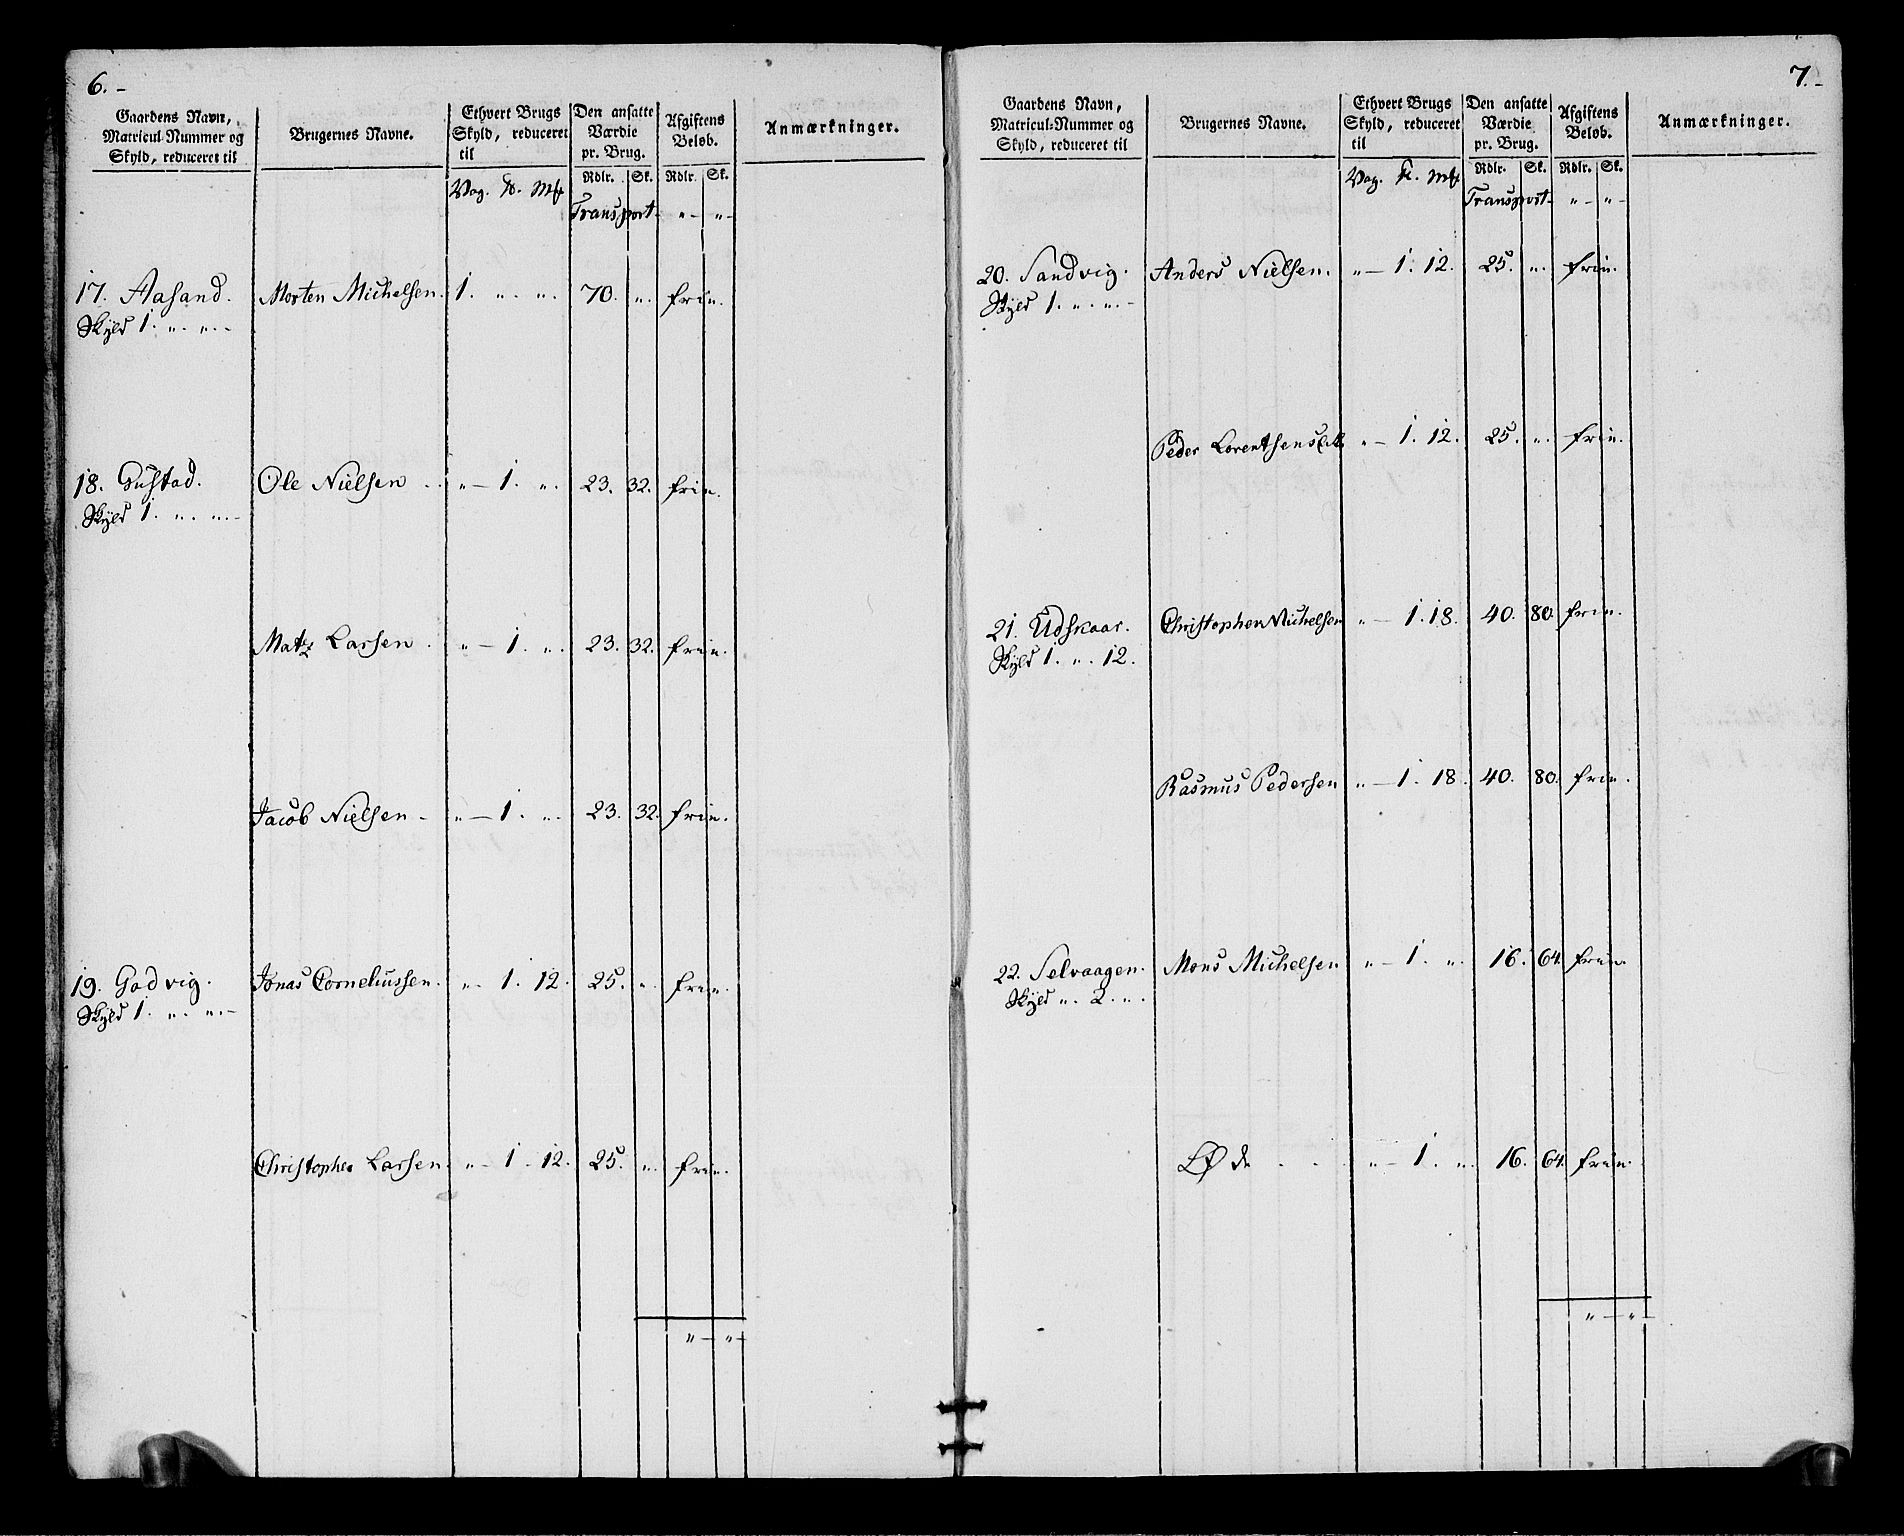 6. -
Gaardens Navn, Matricul-Nummer og Skyld, reduceret til | Brugernes Navne. | Ethvert Brugs Skyld, reduceret til | Den ansatte Værdie pr. Brug. | Afgiftens Beløb. | Anmærkninger.
Vog. | Rdlr. Sk. | Rdlr. Sk.
Transport - „ - „ -
17. Aasand. Morten Michelsen. 1. „ „. 70. „. frie.
Skyld 1. „. „. -
18. Gustad. Ole Nielsen . . „ - 1. „. 23. 32. frie.
Skyld 1. „. „. -
Matz Larsen . „ - 1. „. 23. 32. frie.
Jacob Nielsen - „ - 1. „. 23. 32. frie.
19. Godvig. Jonas Corneliussen. „ - 1. 12. 25. „. frie.
Skyld 1. „. „. -
Christopher Larsen. „ - 1. 12. 25. „. frie.
„ - „ -
7. -
Gaardens Navn, Matricul-Nummer og Skyld, reduceret til | Brugernes Navne. | Ethvert Brugs Skyld, reduceret til | Den ansatte Værdie pr. Brug. | Afgiftens Beløb. | Anmærkninger.
Vog. | Rdlr. Sk. | Rdlr. Sk.
Transport - „ - „ -
20. Sandvig. Anders Nielsen. „ - 1. 12. 25. „. frie.
Skyld 1. „. „. -
Peder Lorentsens „ - 1. 12. 25. „. frie.
21. Udskaar. Christopher Michelsen „ - 1. 18. 40. 80. frie.
Skyld 1. „. 12.
Rasmus Pedersen „ - 1. 18. 40. 80. frie.
22. Selvaagen. Mons Michelsen „ - 1. „. 16. 64. frie.
Skyld „. 2. „.
Øde . . . „ - 1. „. 16. 64. frie.
„ - „ -